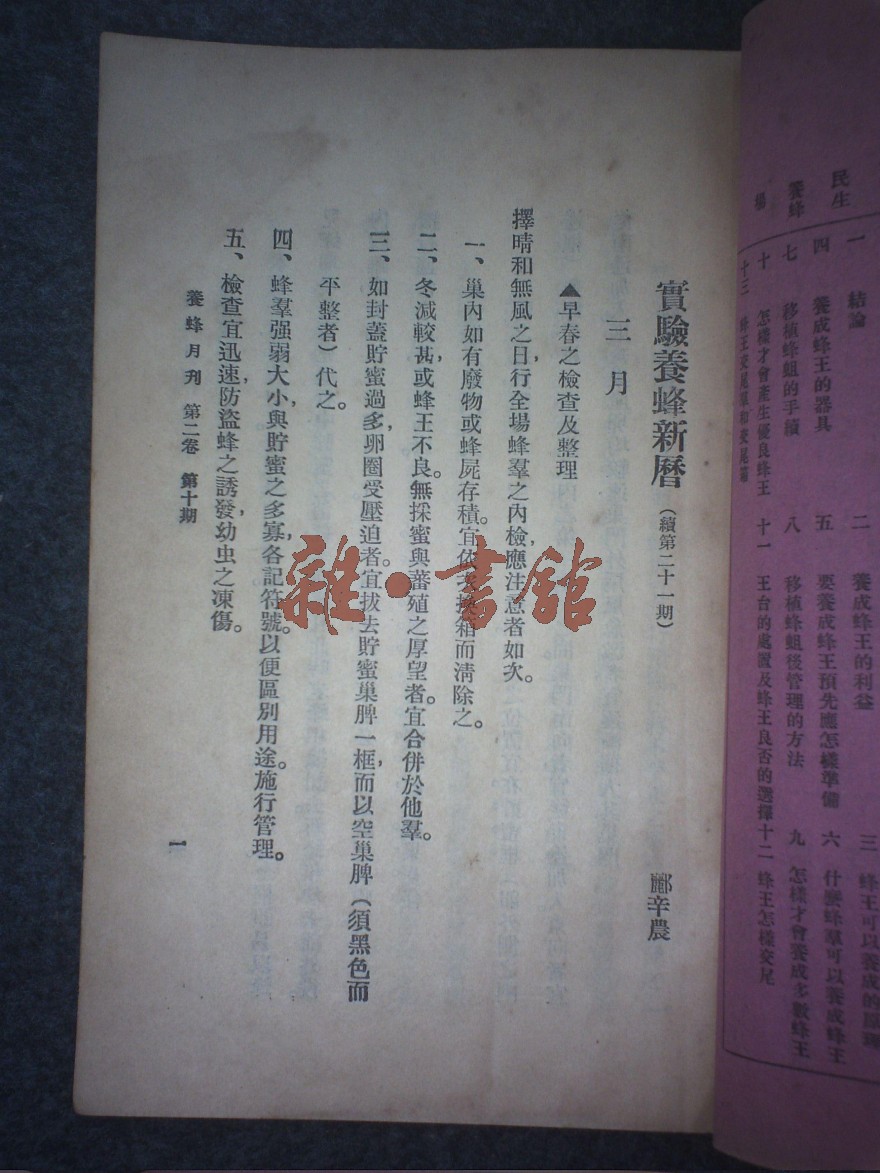 民生
養蜂
場
一　結論
二　養成蜂王的利益
三　蜂王可以養成的原理
四　養成蜂王的器具
五　要養成蜂王預先應怎樣準備
六　什麼蜂羣可以養成蜂王
七　移植蜂蛆的手續
八　移植蜂蛆後管理的方法
九　怎樣才會養成多數蜂王
十　怎樣才會產生優良蜂王
十一　王台的處置及蜂王良否的選擇
十二　蜂王怎樣交尾
十三　蜂王交尾羣和交尾箱
實驗養蜂新曆（續第二十一期）　酈辛農
三月
▲早春之檢查及整理
擇晴和無風之日，行全場蜂羣之內檢，應注意者如次。
一、巢內如有廢物或蜂屍存積。宜依次換箱而清除之。
二、冬減較甚，或蜂王不良。無採蜜與蕃殖之厚望者。宜合併於他羣。
三、如封蓋貯蜜過多，卵圈受壓迫者。宜拔去貯蜜巢脾一框，而以空巢脾（須黑色而
平整者）代之。
四、蜂羣强弱大小，與貯蜜之多寡，各記符號。以便區別用途。施行管理。
五、檢查宜迅速，防盜蜂之誘發，幼虫之凍傷。
養蜂月刊　第二卷　第十期
一
雜·書館